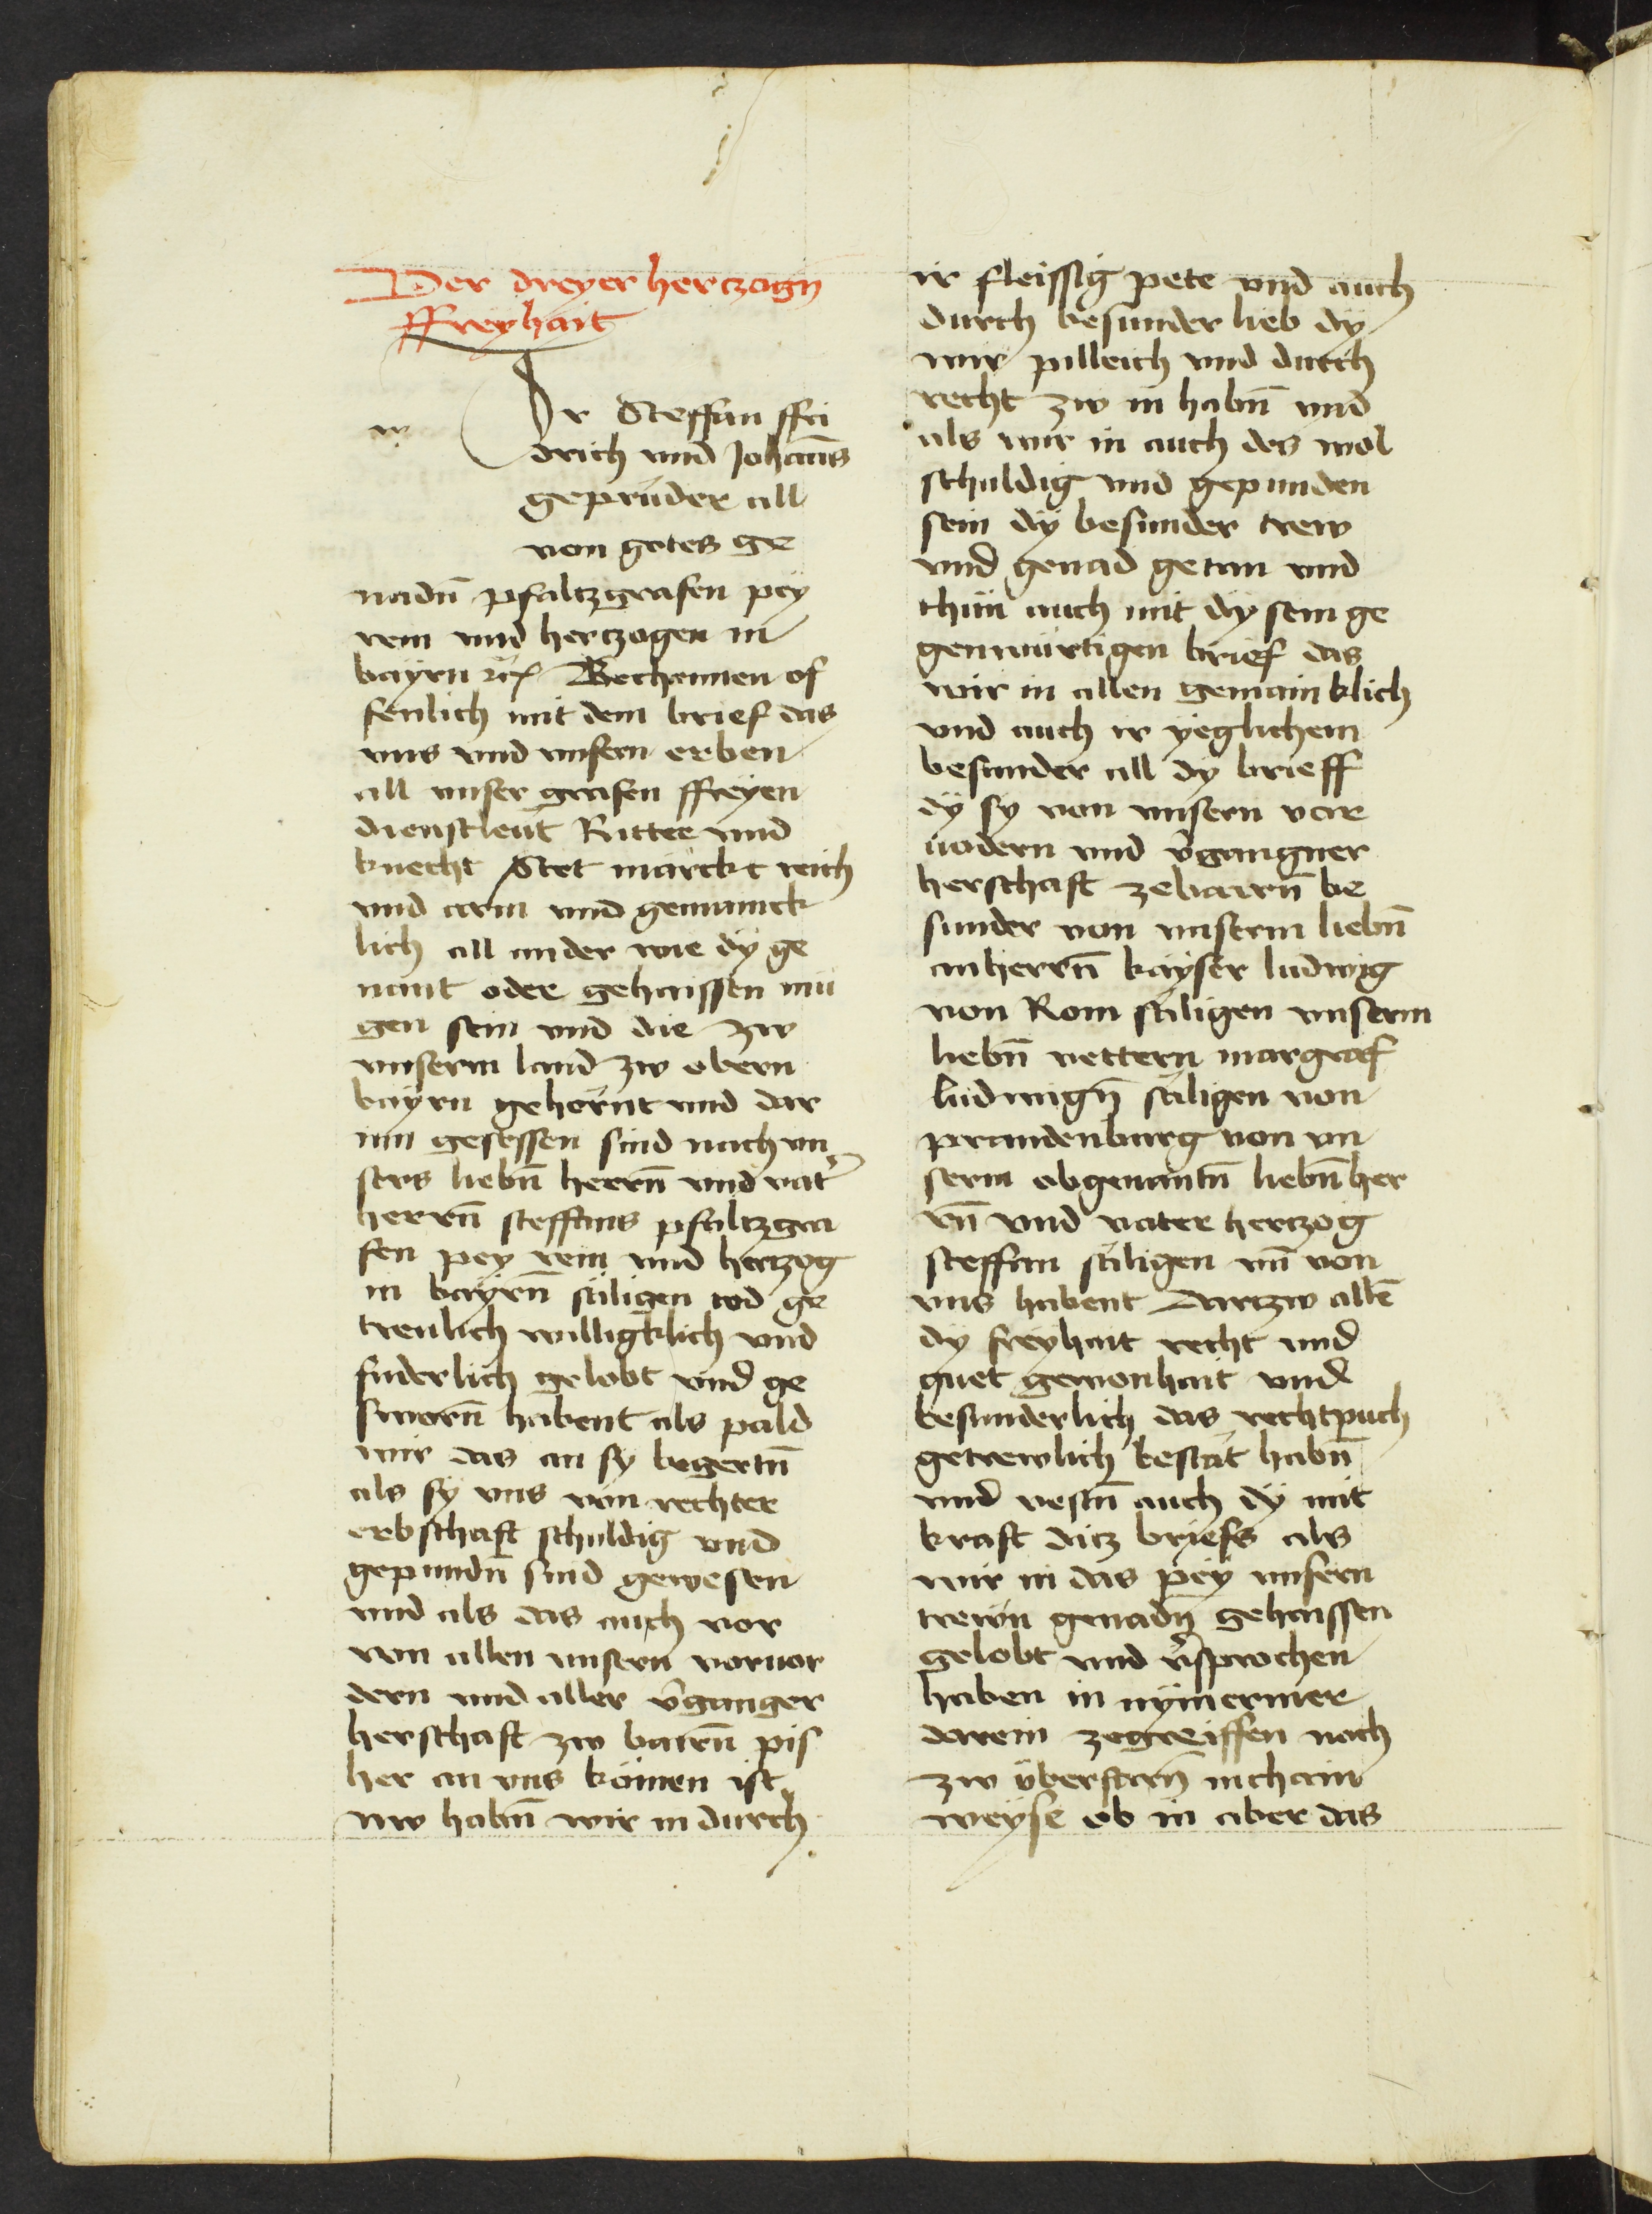 Der dreyer hertzogn
ffreyhait
w
Ir Steffan ffri
drich vnd Johanns
geprüder all
von gotes ge
nadn̄ pfaltzgrafen pey
rein vnd hertzogen in
bayrn ꝛc̃ Bechennen of
fenlich mit dem brief das
vns vnd vnsern erben
all vnser grafen ffreyen
dienstleut Ritter vnd
knecht Stet märckt reich
vnd arm vnd gemainck
lich all ander wie dÿ ge
nant oder gehaissen mü
gen sein vnd die zw
vnserm land zw obern
bayrn gehörnt vnd dar
inn gesessen sind nach vn
sers liebn̄ herrn̄ vnd vat̾
herrn̄ steffans pfaltzgra
fen pey rein vnd hertzog
in bayrn̄ säligen tod ge
treulich willigklich vnd
fuderlich gelobt vnd ge
sworn̄ habent als pald
wir das an sy begertn̄
als sÿ vns von rechter
erbschaft schuldig vnd
gepundn̄ sind gewesen
vnd als das auch vor
von allen vnsern voruor
dern vnd aller v̾ganger
herschaft zw bairn̄ pis
her an vns kömen ist
nw habn̄ wir in durch
ir fleissig pete vnd auch
durch besunder lieb dÿ
wir pilleich vnd durch
recht zw in habn̄ vnd
als wir in auch des wol
schuldig vnd gepunden
sein dÿ besunder trew
vnd genad getan vnd
thün auch mit dÿsem ge
genwürtigen brief das
wir in allen gemainklich
vnd auch ir yeglichem
besunder all dy brieff
dÿ sy von vnsern vor
uodern vnd v̾gangner
herschaft zebairn̄ be
sunder von vnserm liebn̄
anherrn̄ kayser ludwig
von Rom säligen vnserm
liebn̄ vettern margraf
ludwign̄ säligen von
prandenburg von vn
serm obgenantn̄ liebn̄ her
rn̄ vnd vater hertzog
steffan säligen vn̄ von
vns habent Dartzw allē
dÿ freÿhait recht vnd
guet gewonhait vnd
besunderlich das rechtpuch
getrewlich bestät habn̄
vnd vestn̄ auch dÿ mit
kraft ditz briefs als
wir in das pey vnsern
trewn genadn̄ gehaissen
gelobt vnd v̾sprochen
haben in nÿmermer
darein zegreiffen noch
zw überfarn̄ in chain
weÿse ob in aber das